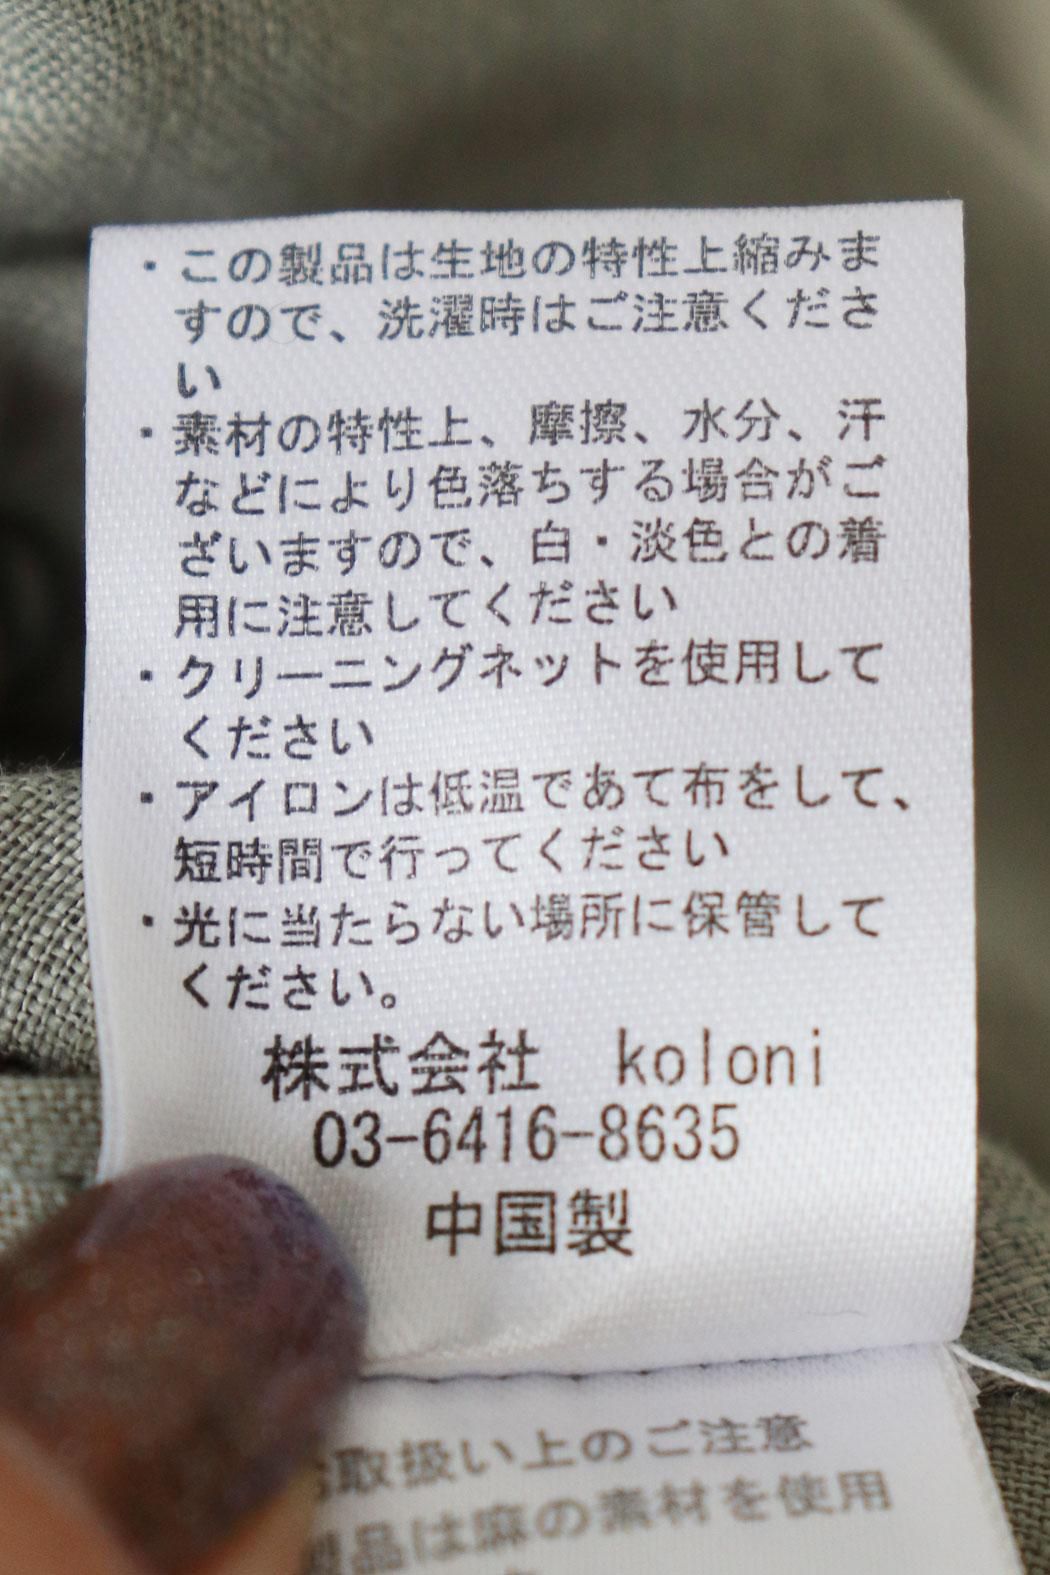 ・この製品は生地の特性上縮みま
すので、洗濯時はご注意くださ
い
・素材の特性上、摩擦、水分、汗
などにより色落ちする場合がご
ざいますので、白・淡色との着
用に注意してください
・クリーニングネットを使用して
ください
・アイロンは低温であて布をして、
短時間で行ってください
・光に当たらない場所に保管して
ください。
株式会社 koloni
03-6416-8635
中国製
取扱い上のご注意
製品は麻の素材を使用